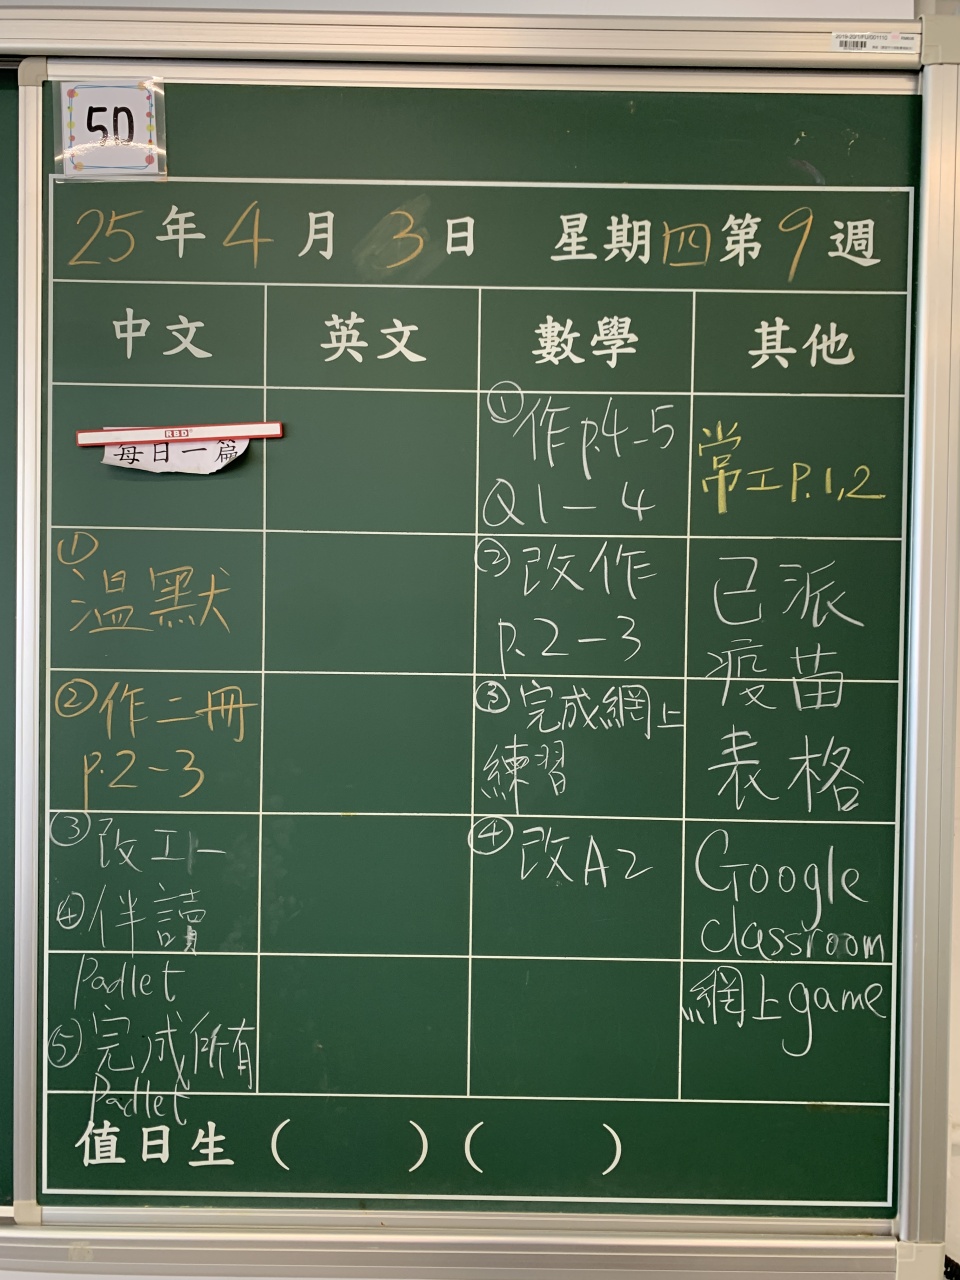 5D
25年4月3日 星期四第9週
中文 英文 數學 其他
RBD
每日一篇
①溫默
②作二冊
p.2-3
③改工一
④伴讀
Padlet
⑤完成所有
Padlet
①作p.4-5
Q1-4
②改作
p.2-3
③完成網上
練習
④改A2
常工P.1,2
已派
疫苗
表格
Google
classroom
網上game
值日生 (  ) (  )